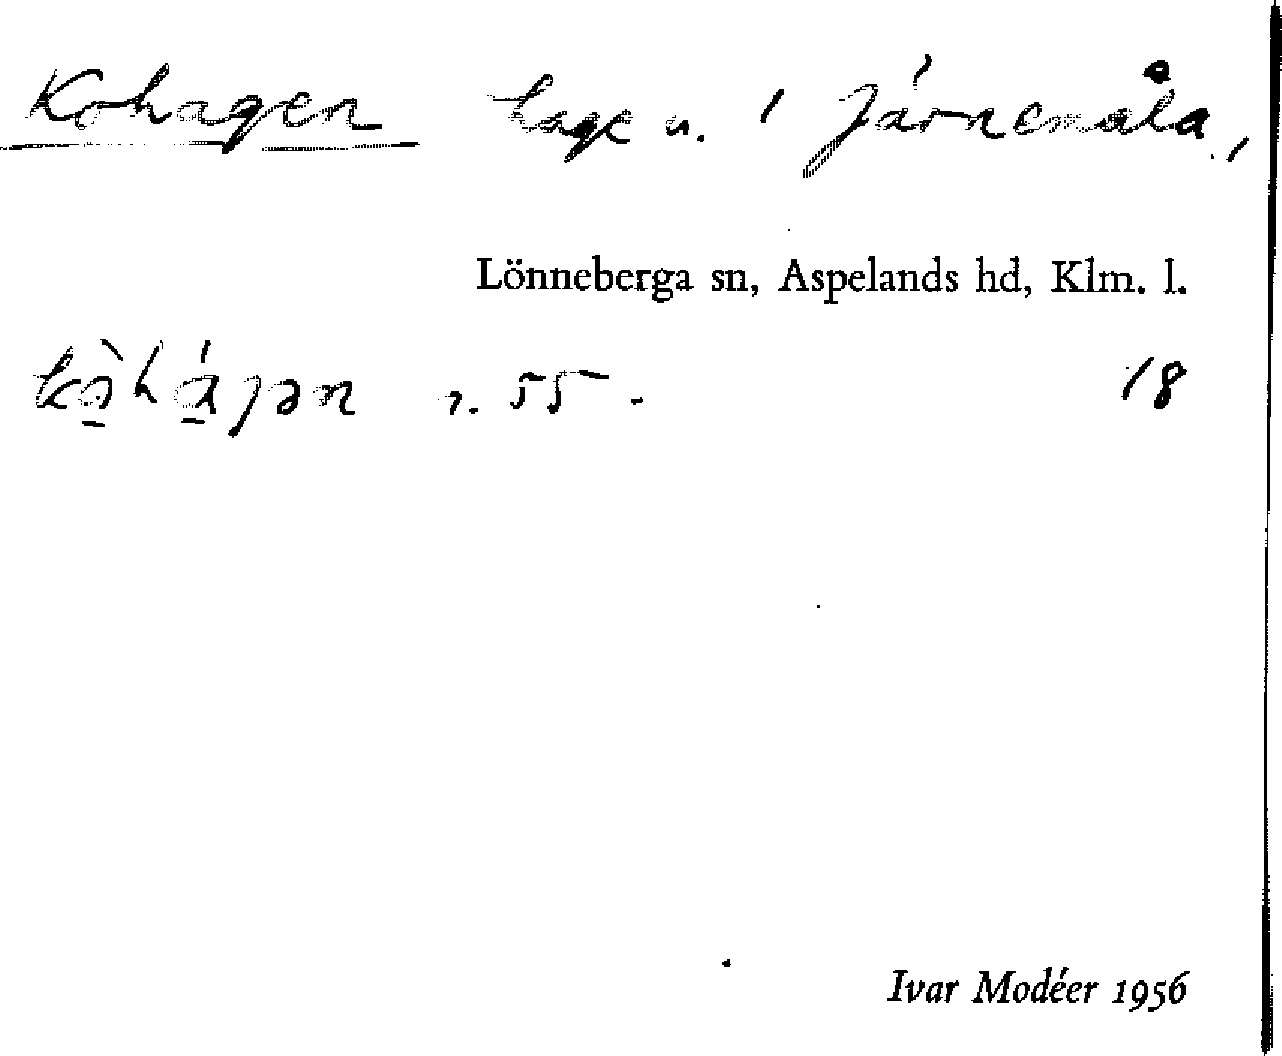 Kohagen hage u. i Järnemåla,
Lönneberga sn, Aspelands hd, Klm. l.
kò̱há̱gən r. 55. 18
Ivar Modéer 1956